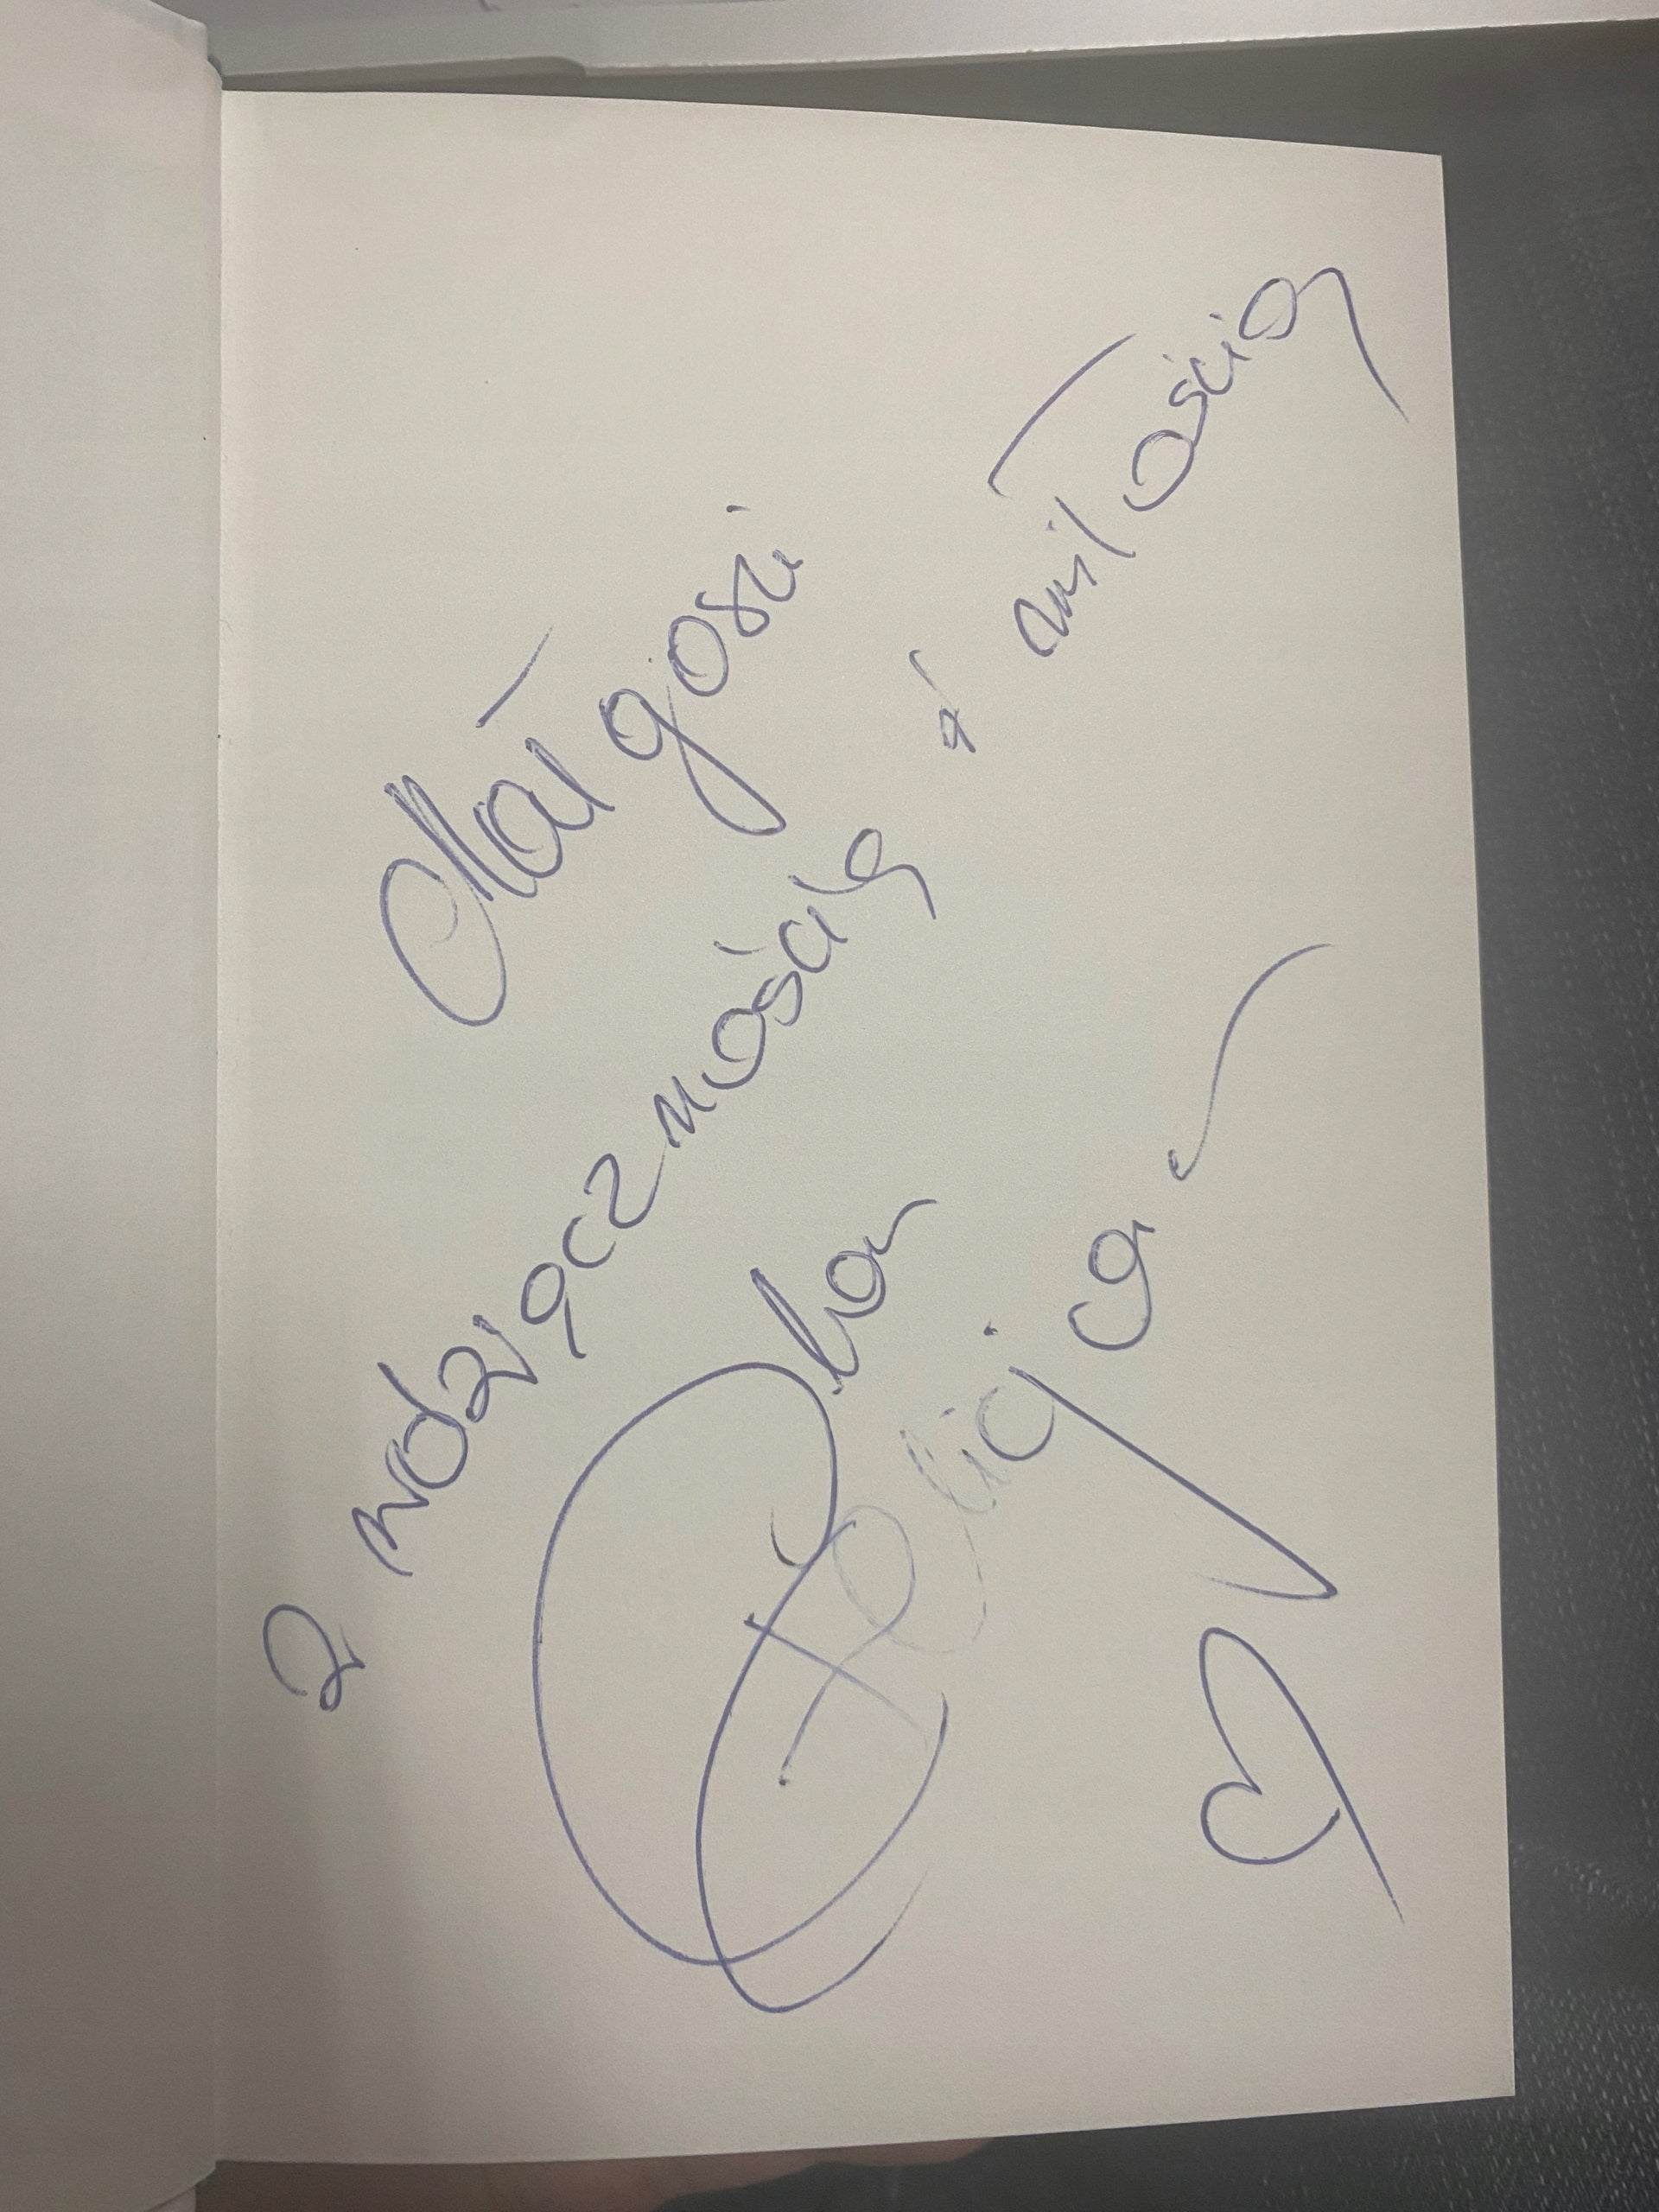 Małgosi
z wdzięcznością i miłością
Ilona
Felicja